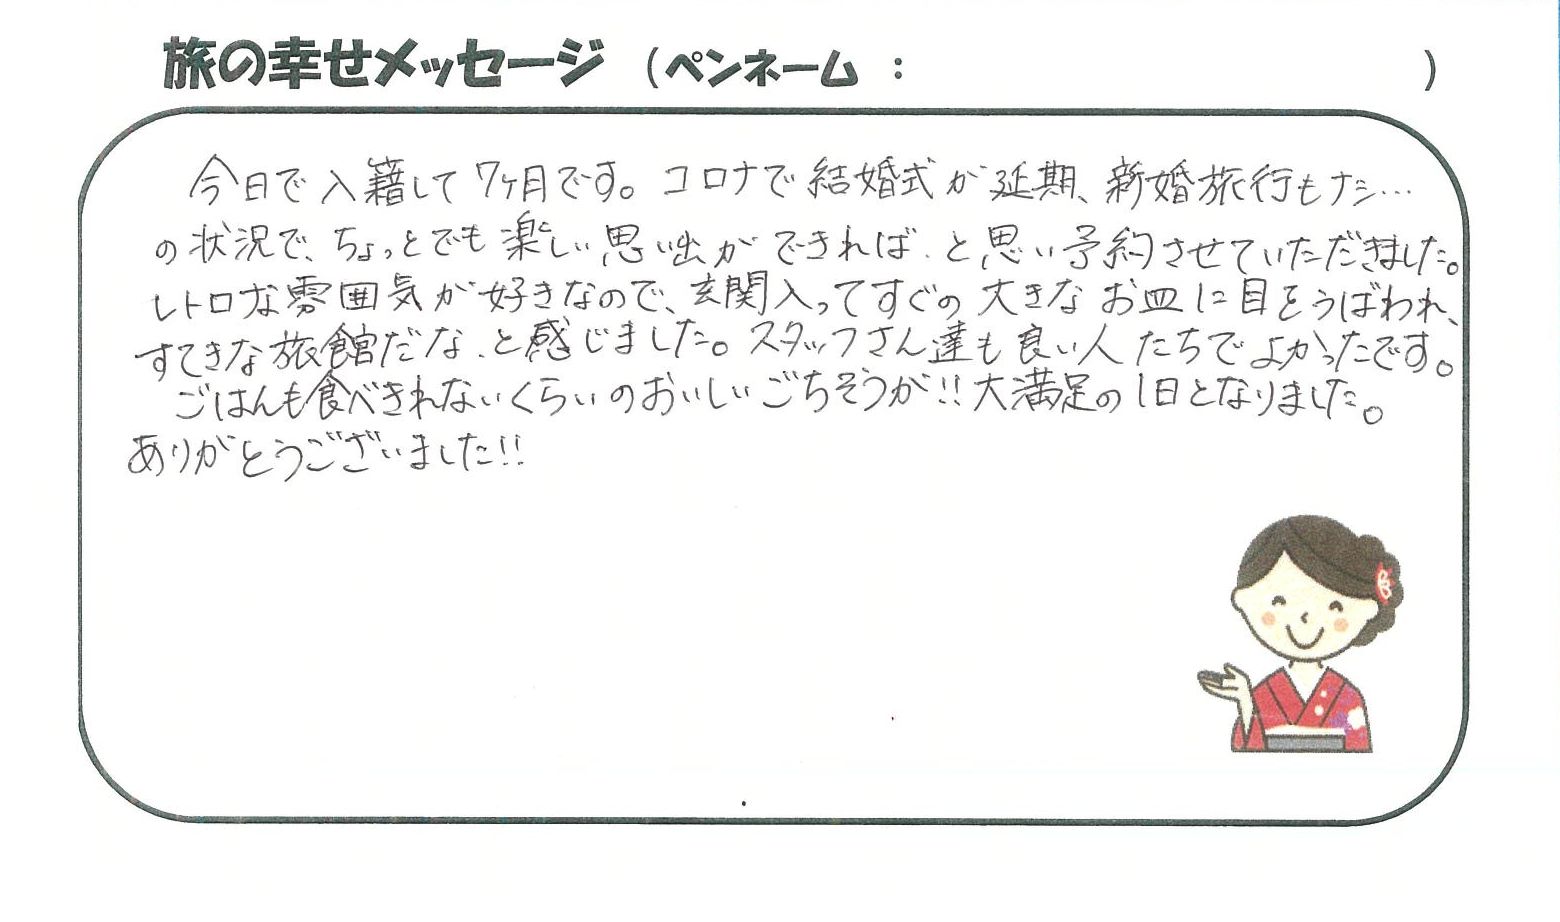 旅の幸せメッセージ (ペンネーム : )
今日で入籍して7ヶ月です。コロナで結婚式が延期、新婚旅行もナシ…
の状況で、ちょっとでも楽しい思い出ができれば、と思い予約させていただきました。
レトロな雰囲気が好きなので、玄関入ってすぐの大きなお皿に目をうばわれ、
すてきな旅館だな、と感じました。スタッフさん達も良い人たちでよかったです。
ごはんも食べきれないくらいのおいしいごちそうが!!大満足の1日となりました。
ありがとうございました!!